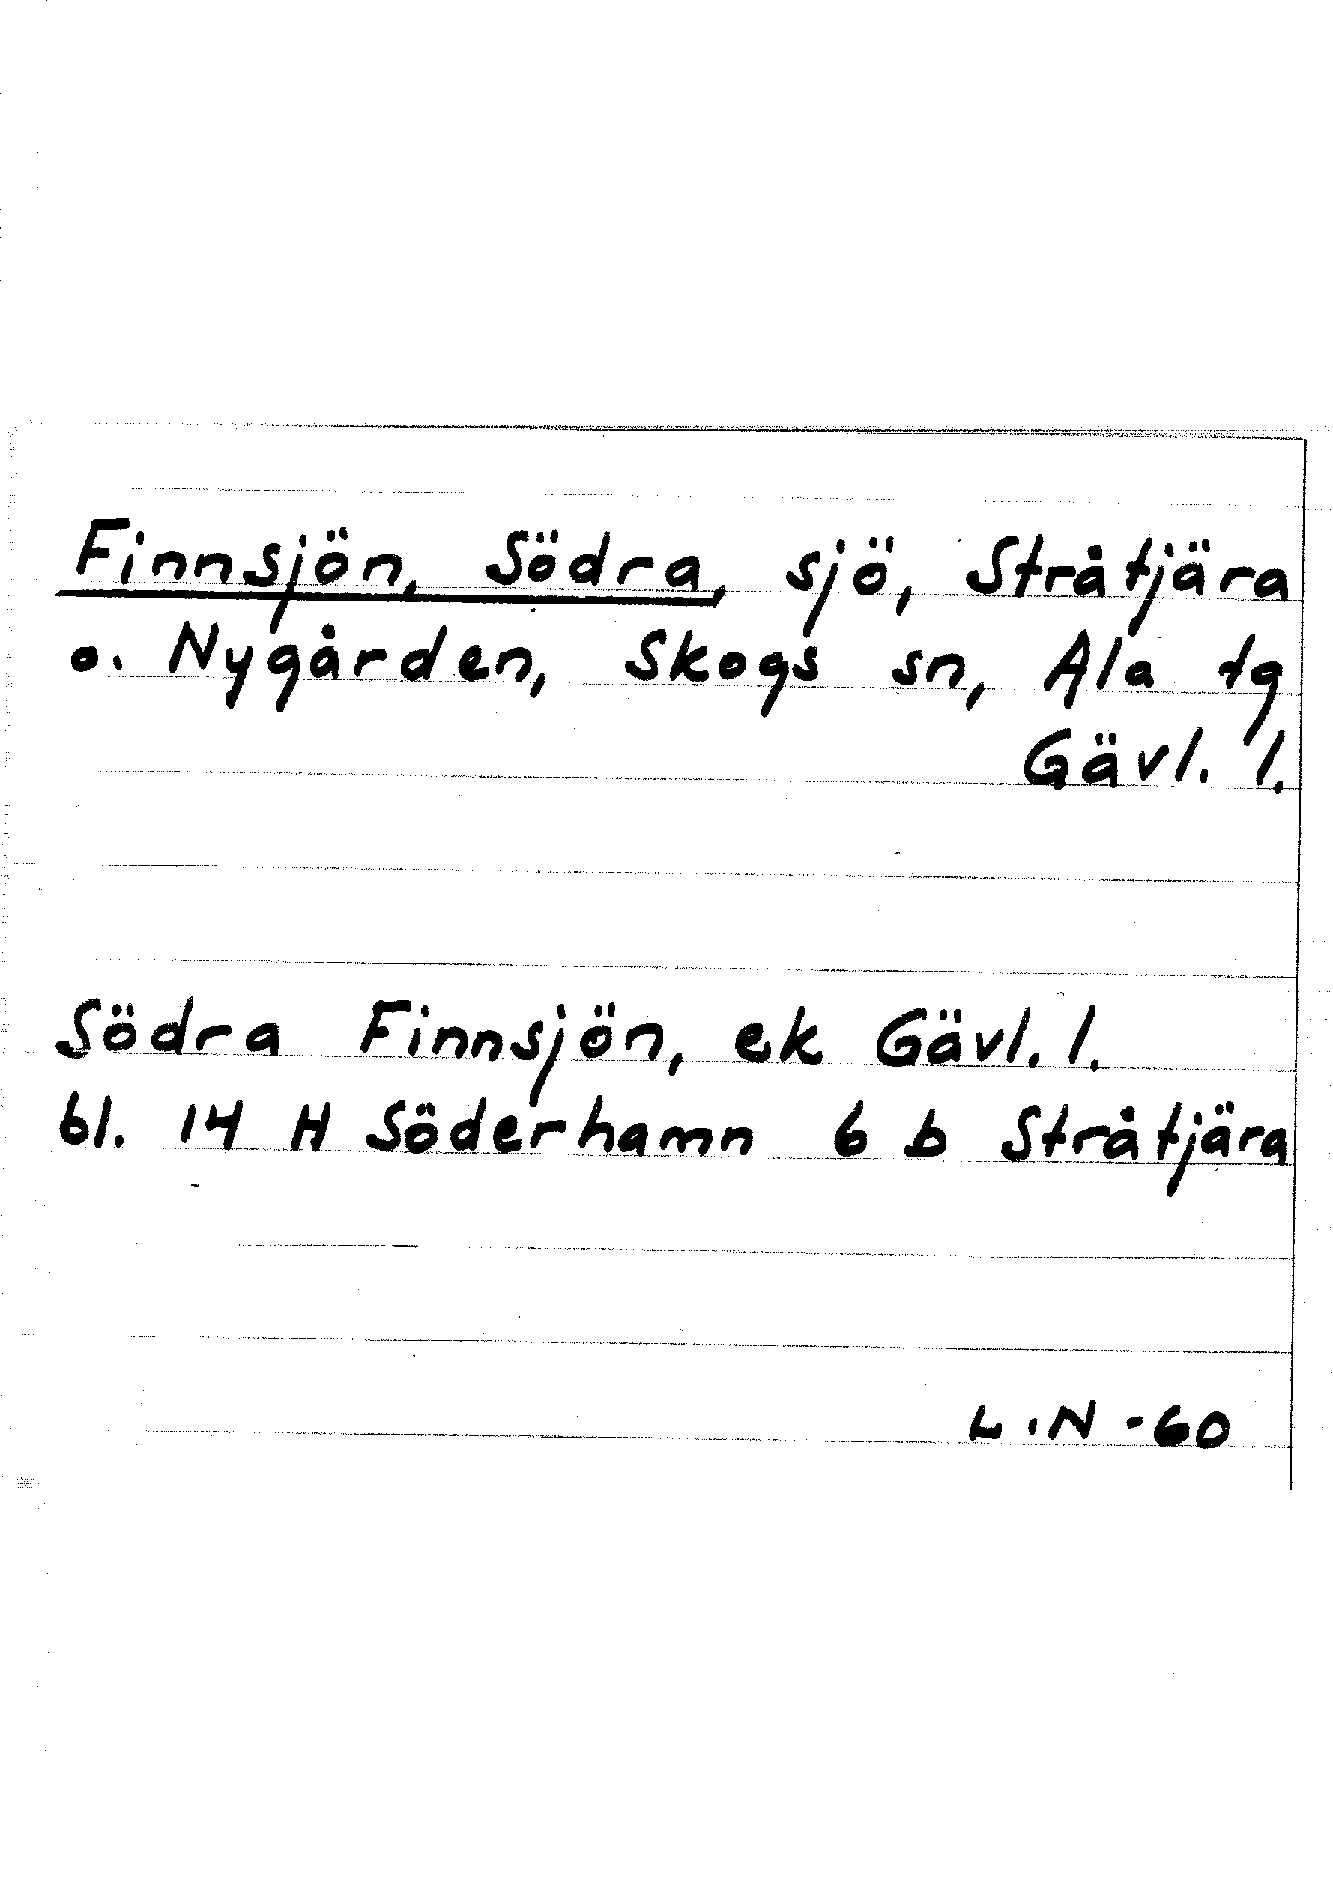 Finnsjön, Södra, sjö, Stråtjära
o. Nygården, Skogs sn, Ala tg
Gävl. l.
Södra Finnsjön, ek Gävl. l.
bl. 14 H Söderhamn 6 b Stråtjära
L.N -60